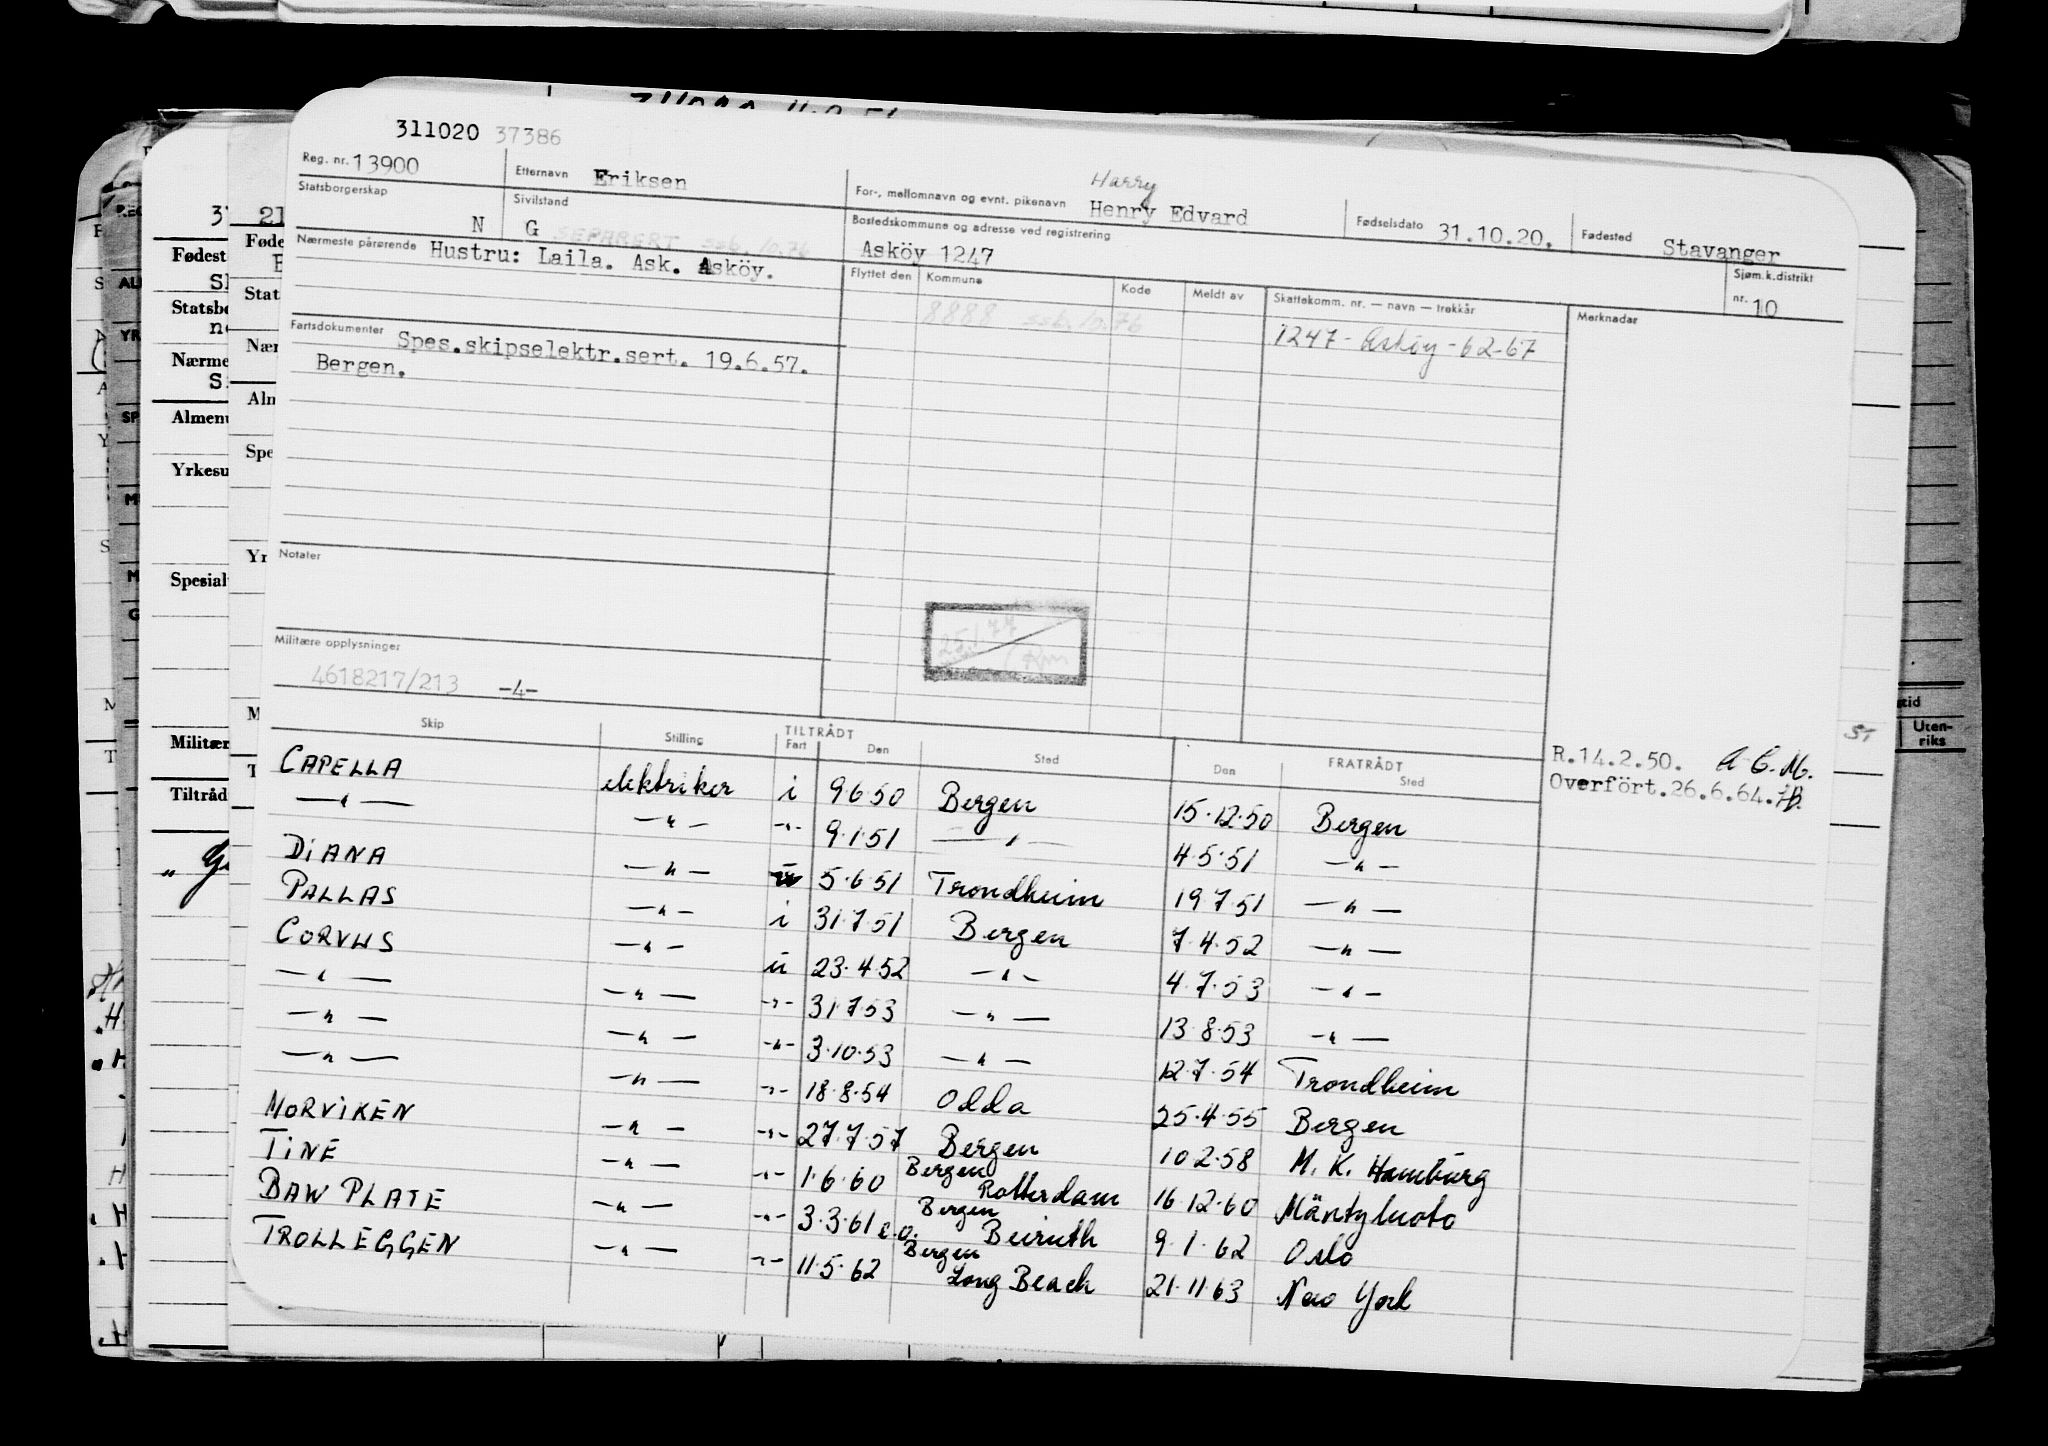 311020 37386
Reg. nr. 13900 Etternavn Eriksen For-, mellomnavn og evnt. pikenavn Harry Henry Edvard Fødselsdato 31.10.20. Fødested Stavanger
Statsborgerskap N Sivilstand G SEPARERT ssb. 10.76 Bostedskommune og adresse ved registrering Asköy 1247 Sjøm.k.distrikt nr. 10
Nærmeste pårørende Hustru: Laila. Ask. Asköy.
Flyttet den Kommune Kode Meldt av Skattekomm. nr. — navn — trekkår Merknader
8888 ssb. 10.76 1247 - Asköy - 62-67
Fartsdokumenter Spes.skipselektr.sert. 19.6.57.
Bergen.
Notater
Militære opplysninger
4618217/213 -4-
Skip Stilling TILTRÅDT Fart Den Sted FRATRÅDT Den Sted
R.14.2.50. A C. M.
Overfört.26.6.64.
CAPELLA elektriker i 9.6.50 Bergen 15.12.50 Bergen
—"— —"— -"- 9.1.51 —"— 4.5.51 —"—
DIANA —"— u 5.6.51 Trondheim 19.7.51 —"—
PALLAS —"— i 31.7.51 Bergen 7.4.52 —"—
CORVUS —"— u 23.4.52 —"— 4.7.53 —"—
—"— —"— -"- 31.7.53 —"— 13.8.53 —"—
—"— —"— -"- 3.10.53 —"— 12.7.54 Trondheim
—"— —"— -"- 18.8.54 Odda 25.4.55 Bergen
MORVIKEN —"— -"- 27.7.57 Bergen 10.2.58 M. K. Hamburg
TINE —"— -"- 1.6.60 Bergen Rotterdam 16.12.60 Mäntyluoto
BAW PLATE —"— -"- 3.3.61 e.o. Bergen Beiruth 9.1.62 Oslo
TROLLEGGEN —"— -"- 11.5.62 Bergen Long Beach 21.11.63 New York
Fødest
Statsbo
Nærme
Almenu
Yrkesu
Spesial
Militær
Tiltråd
Uten-
riks